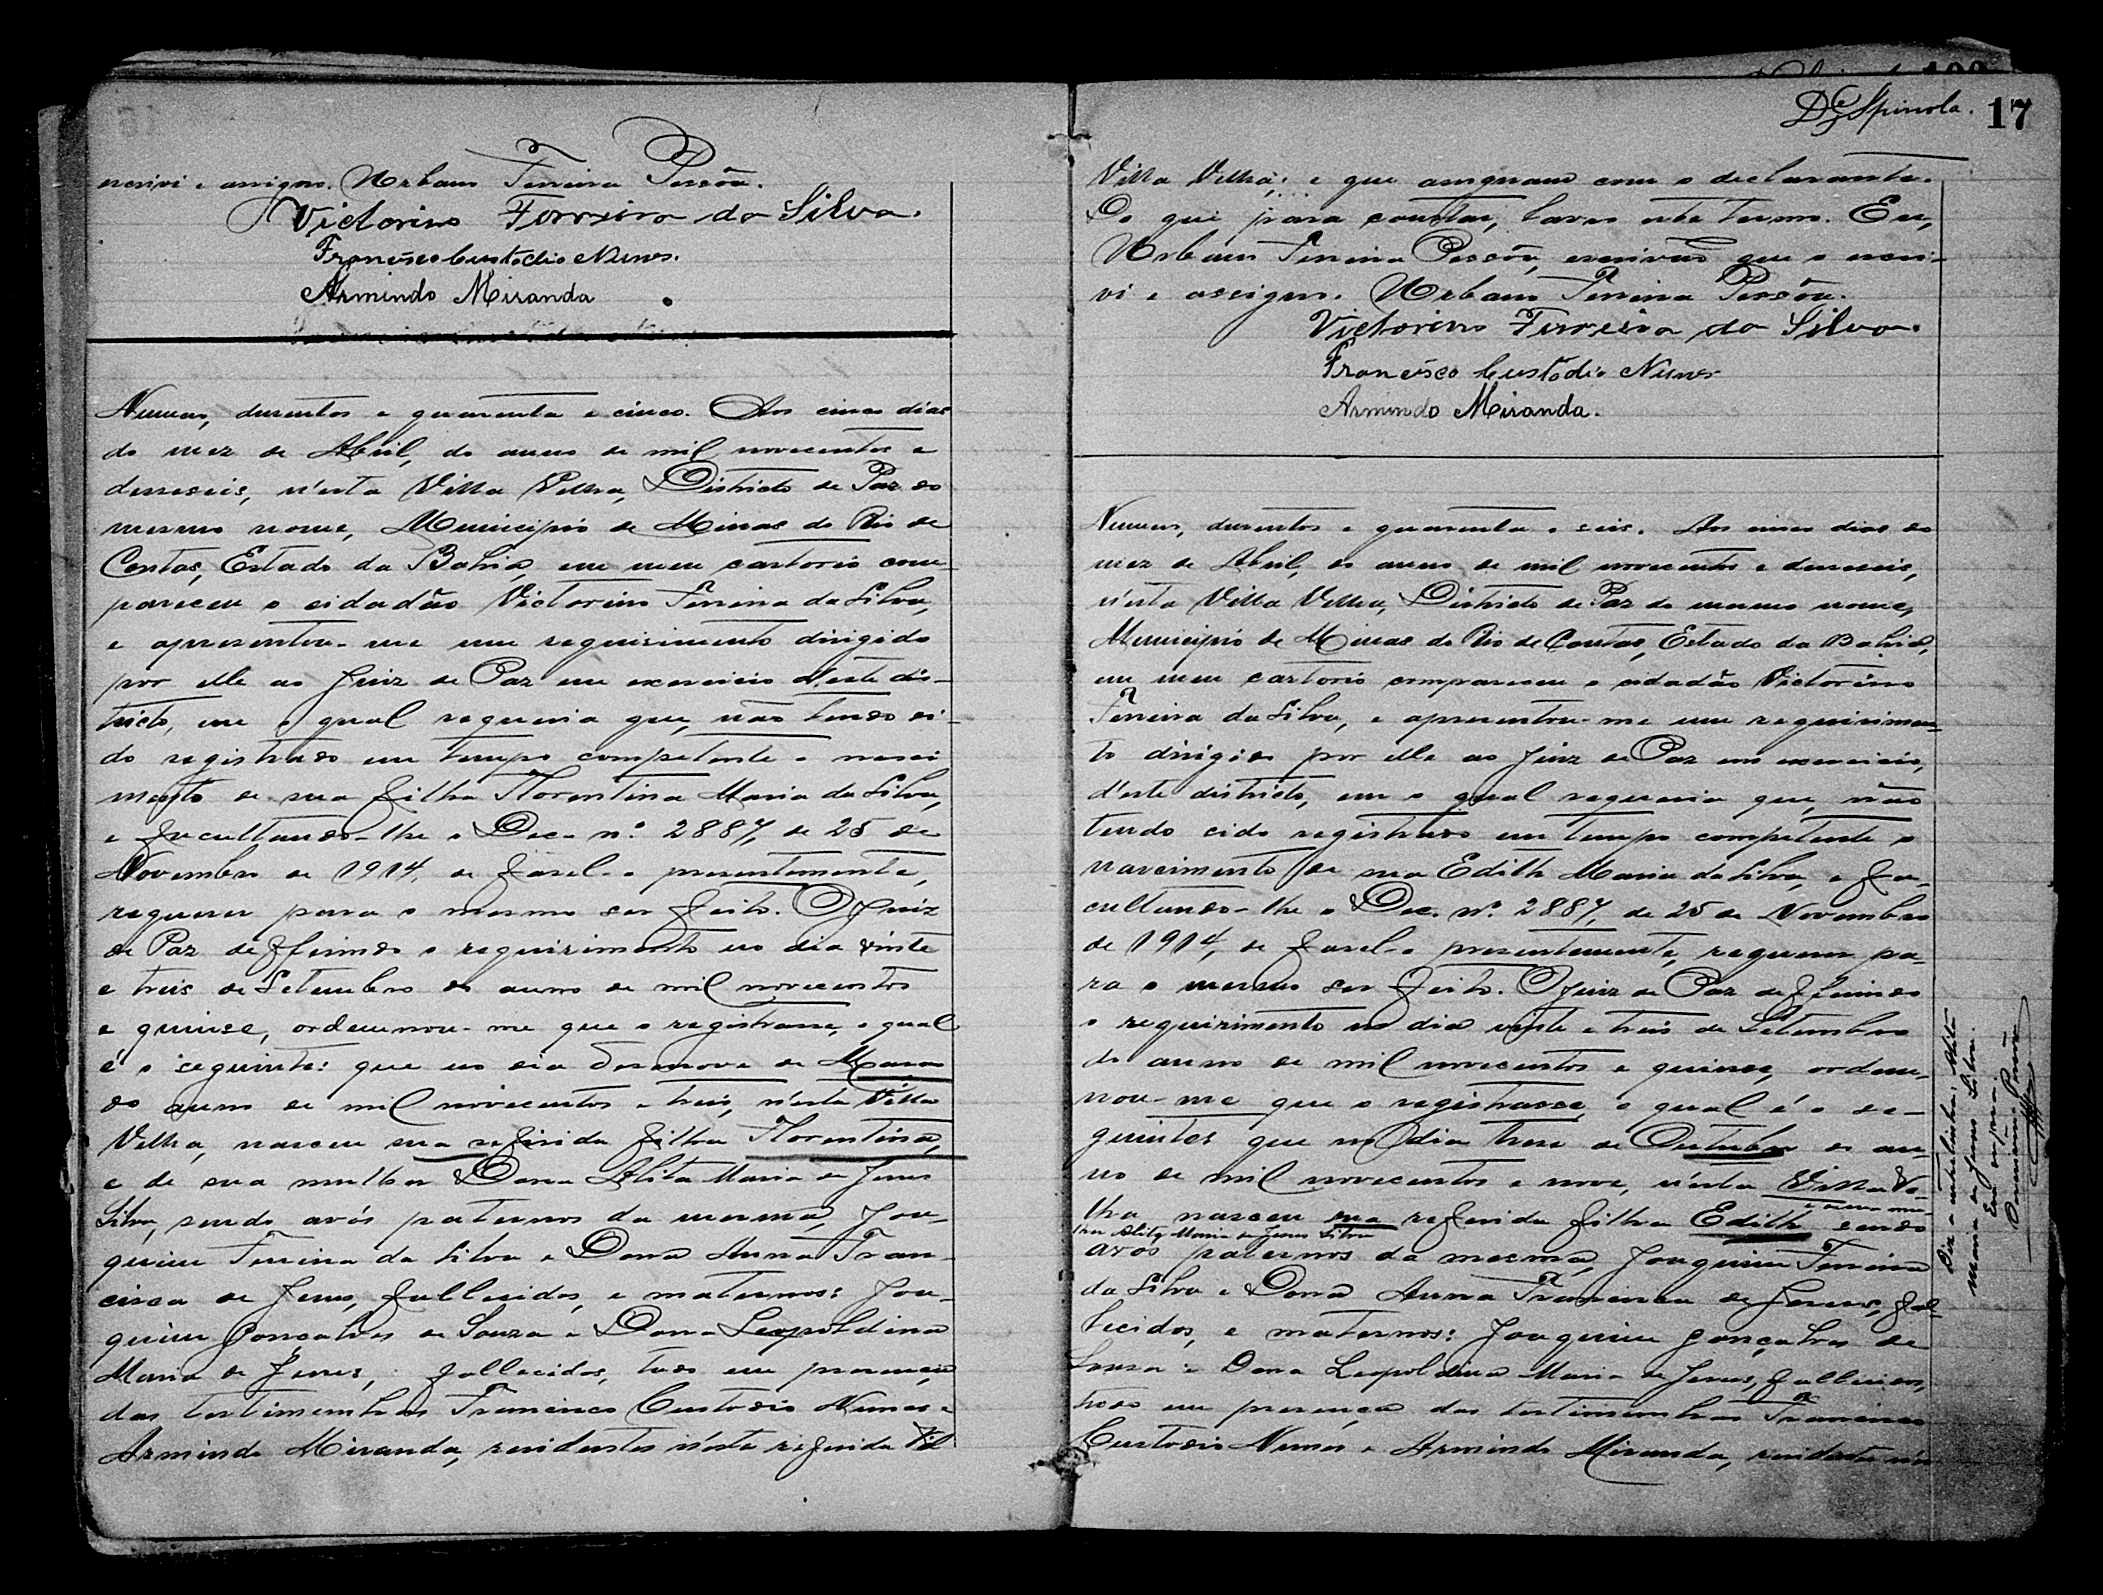 escrivi e assigno. Urbano Ferreira Pessôa.
Victorino Ferreira da Silva.
Francisco Custodio Nunes.
Armindo Miranda
Numero, dusentos e quarenta e cinco. Aos cinco dias
do mez de Abril, do anno de mil novecentos e
deseseis, n'esta Villa Velha, Districto de Paz do
mesmo nome, Municipio de Minas do Rio de
Contas, Estado da Bahia, em meu cartorio com-
pareceu o cidadão Victorino Ferreira da Silva,
e apresentou-me um requirimento dirigido
por elle ao Juiz de Paz em exercicio d'este dis-
tricto, em o qual requeria que, não tendo si-
do registrado em tempo competente o nasci
mento de sua filha Florentina Maria da Silva,
e facultando-lhe o Dec. nº 2887, de 25 de
Novembro de 1914, de fasel-o presentemente,
requerer para o mesmo ser feito. O Juiz
de Paz defferindo o requirimento no dia vinte
e treis de Setembro do anno de mil novecentos
e quinse, ordennou-me que o registrasse, o qual
é o seguinte: que no dia desenove de Março
do anno de mil novecentos e treis, n'esta Villa
Velha, nasceu sua referida filha Florentina,
e de sua mulher Dona Alita Maria de Jesus
Silva, sendo avós paternos da mesma, Joa-
quim Ferreira da Silva e Dona Anna Fran-
cisca de Jesus, fallecidos, e maternos: Joa-
quim Gonçalves de Souza e Dona Leopoldina
Maria de Jesus, fallecidos, tudo em presença
das testimunhas Francisco Custodio Nunes e
Armindo Miranda, residentes n'esta referida Vil
D. Spinola. 17
Villa Velha; e que assignam com o declarante.
Do que para constar, lavro este termo. Eu,
Urbano Ferreira Pessôa, escrivão que o escri-
vi e assigno. Urbano Ferreira Pessôa.
Victorino Ferreira da Silva.
Francisco Custódio Nunes
Armindo Miranda.
Numero, dusentos e quarenta e seis. Aos cinco dias do
mez de Abril, do anno de mil novecentos e deseseis,
n'esta Villa Velha, Districto de Paz do mesmo nome,
Municipio de Minas do Rio de Contas, Estado da Bahia,
em meu cartorio compareceu o cidadão Victorino
Ferreira da Silva, e apresentou-me um requirimen-
to dirigido por elle ao Juiz de Paz em exercicio,
d'este districto, em o qual requeria que, não
tendo cido registrado em tempo competente o
nascimento de sua Edith Maria da Silva, e fa-
cultando-lhe o Dec. nº 2887, de 25 de Novembro
de 1914, de fasel-o presentemente, requerer pa-
ra o mesmo ser feito. O Juiz de Paz defferindo
o requirimento no dia vinte e treis de Setembro
do anno de mil novecentos e quinse, orden-
nou-me que o registrasse, o qual é o se-
guinte: que no dia trese de Outubro do an-
no de mil novecentos e nove, n'esta Villa Ve-
e de sua mu-
lha nasceu sua referida filha Edith sendo
lher Alita Maria de Jesus Silva
avós paternos da mesma, Joaquim Ferreira
da Silva e Dona Anna Francisca de Jesus, fal-
lecidos, e maternos: Joaquim Gonçalves de
Souza e Dona Leopoldina Maria de Jesus, fallecidos,
tudo em presença das testimunhas Francisco
Custodio Nunes e Armindo Miranda, residentes n'es
Diz a entrelinha: Alita
Maria de Jesus Silva.